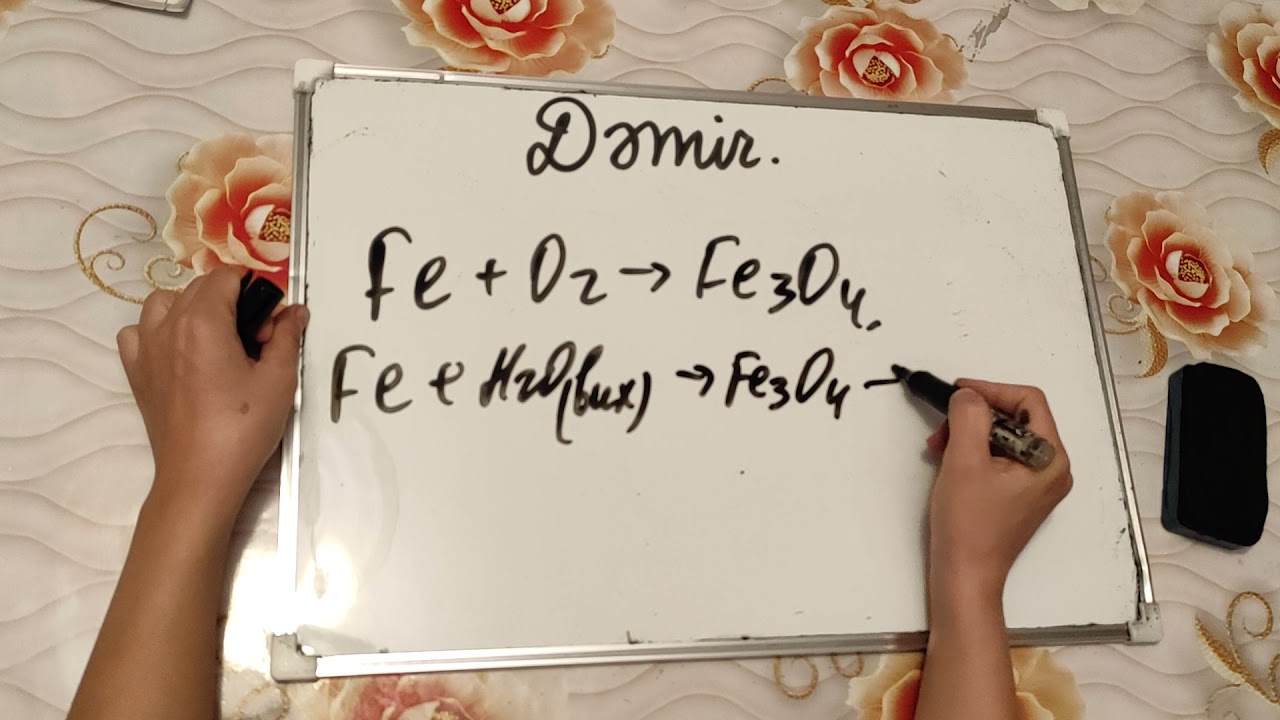 Dəmir.
Fe + O₂ → Fe₃O₄.
Fe + H₂O → Fe₃O₄